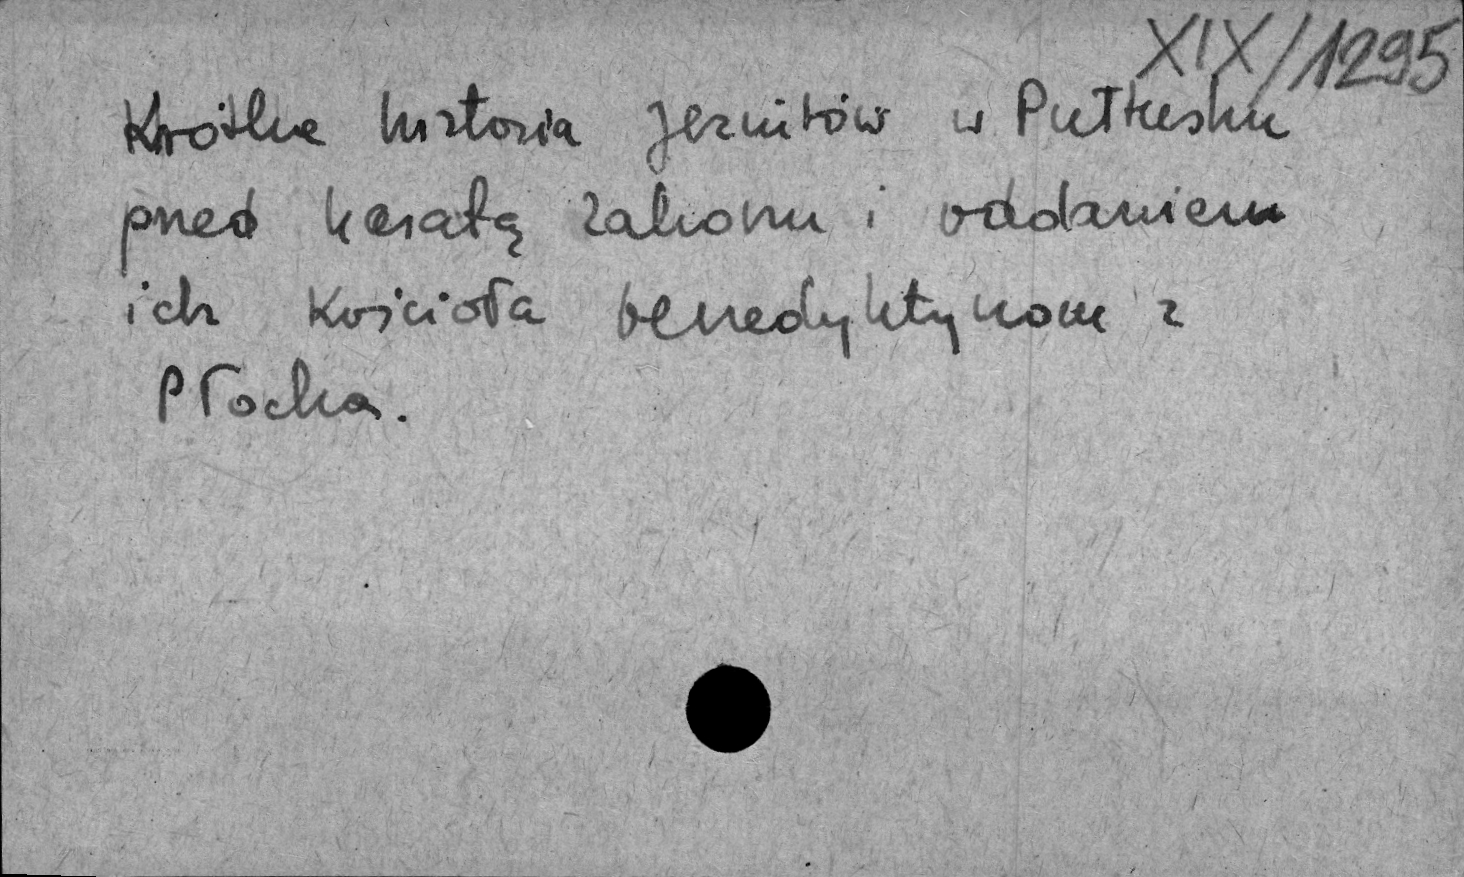 XIX/1295
Krótka historia jezuitów w Pułtusku
przed kasatą zakonu i oddaniem
ich kościoła benedyktynom z
Płocka.